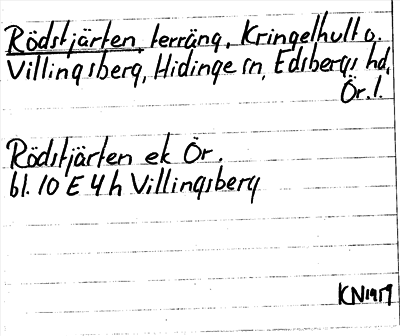 Rödstjärten, terräng, Kringelhult o.
Villingsberg, Hidinge sn, Edsbergs hd,
Ör. l.
Rödstjärten ek Ör.
bl. 10 E 4 h Villingsberg
KN 1979